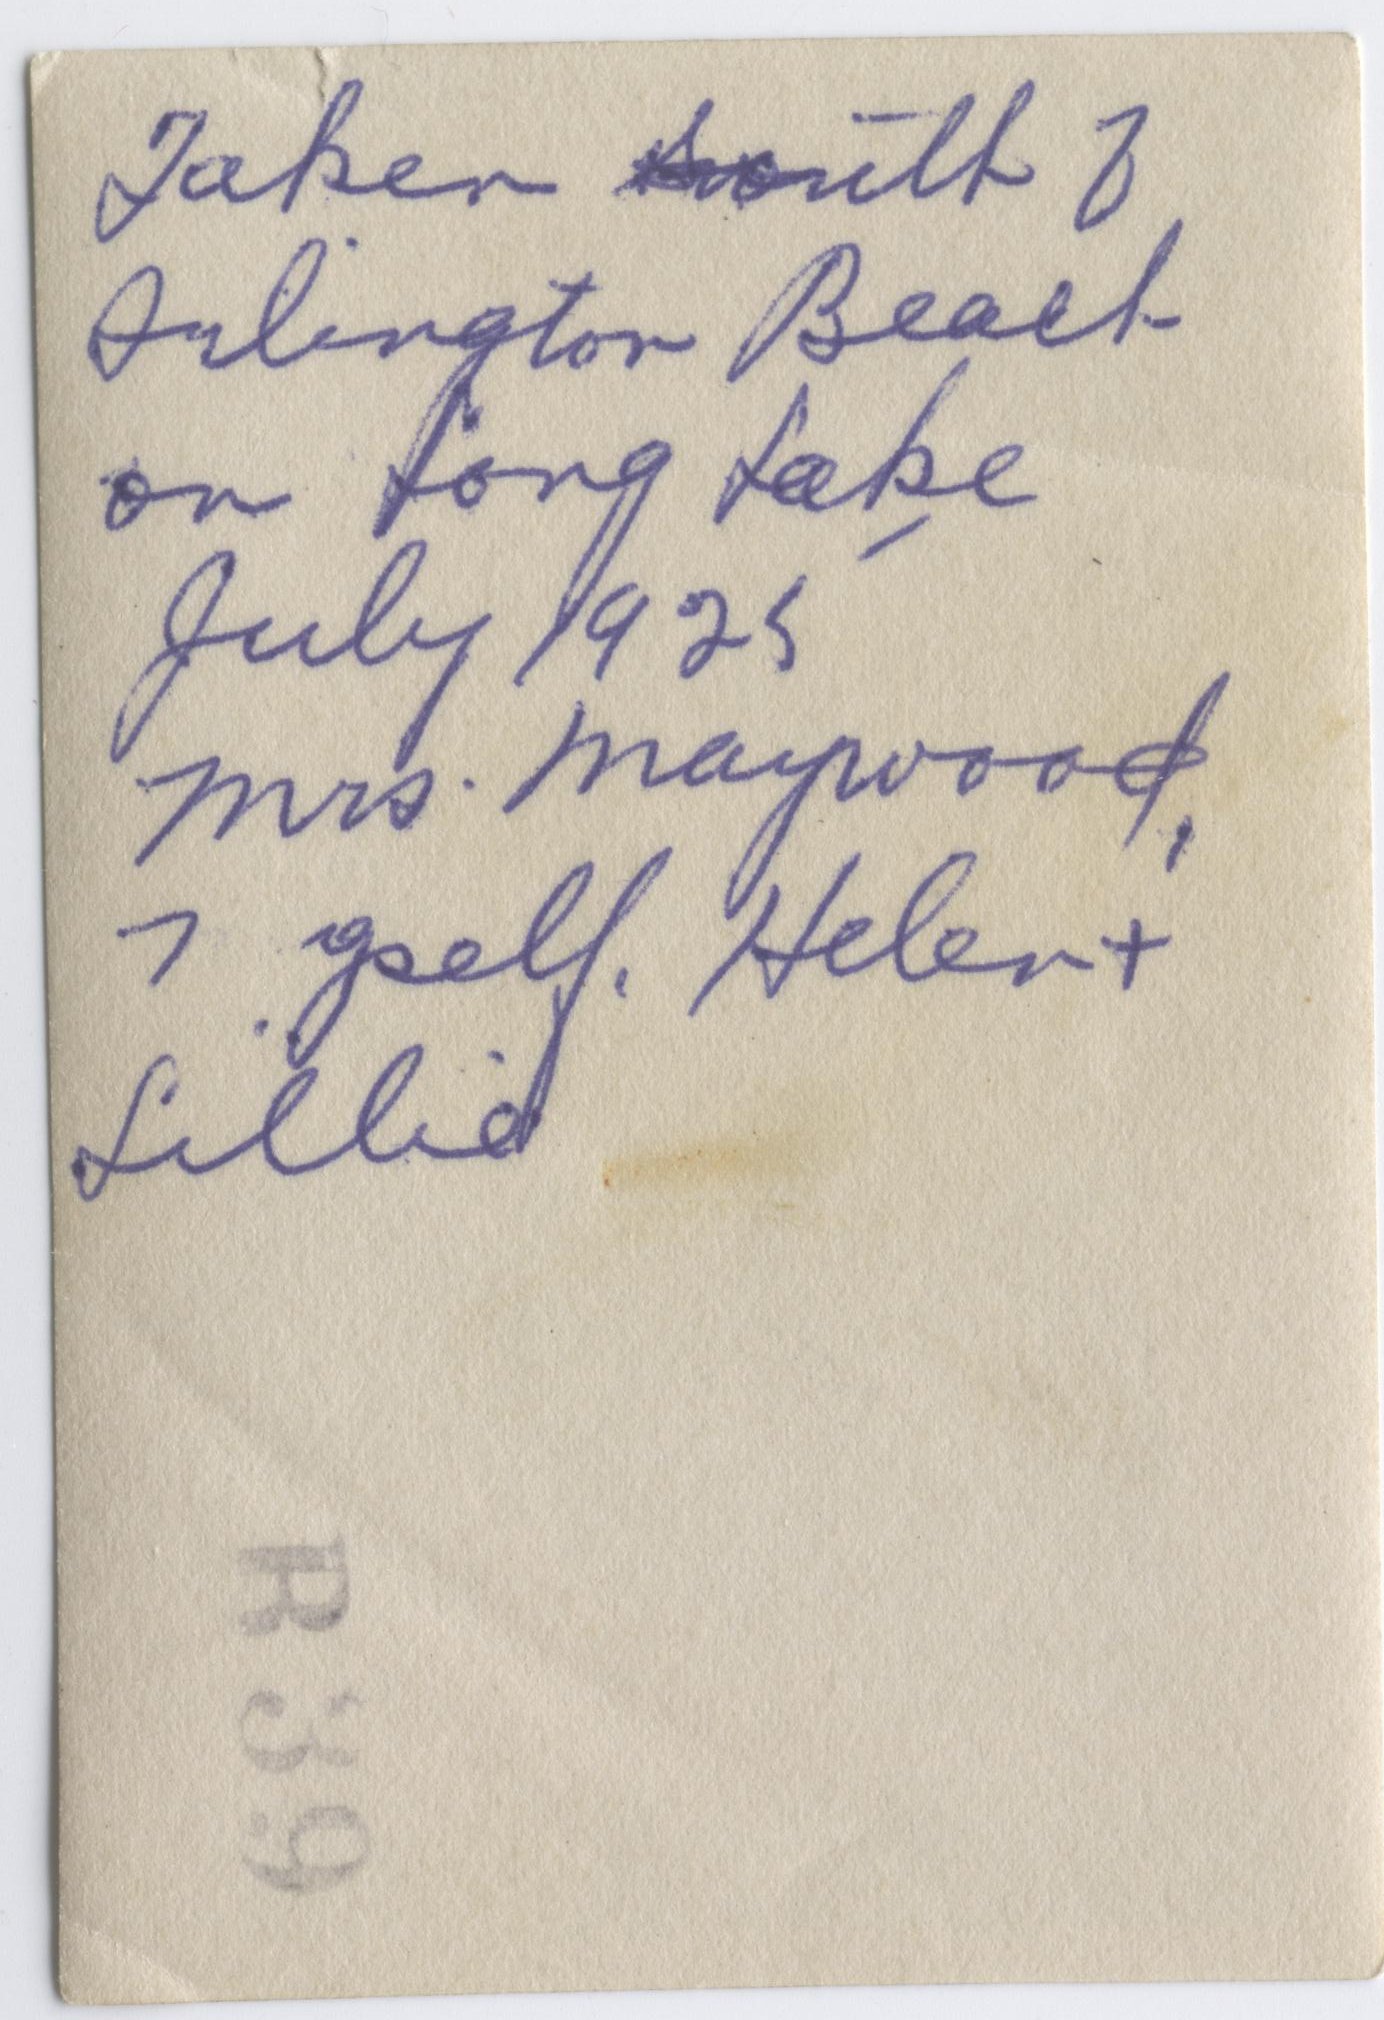 Taken south of
Arlington Beach
on Long Lake
July 1925
Mrs. Maywood,
Myself. Helen +
Lillie
R39